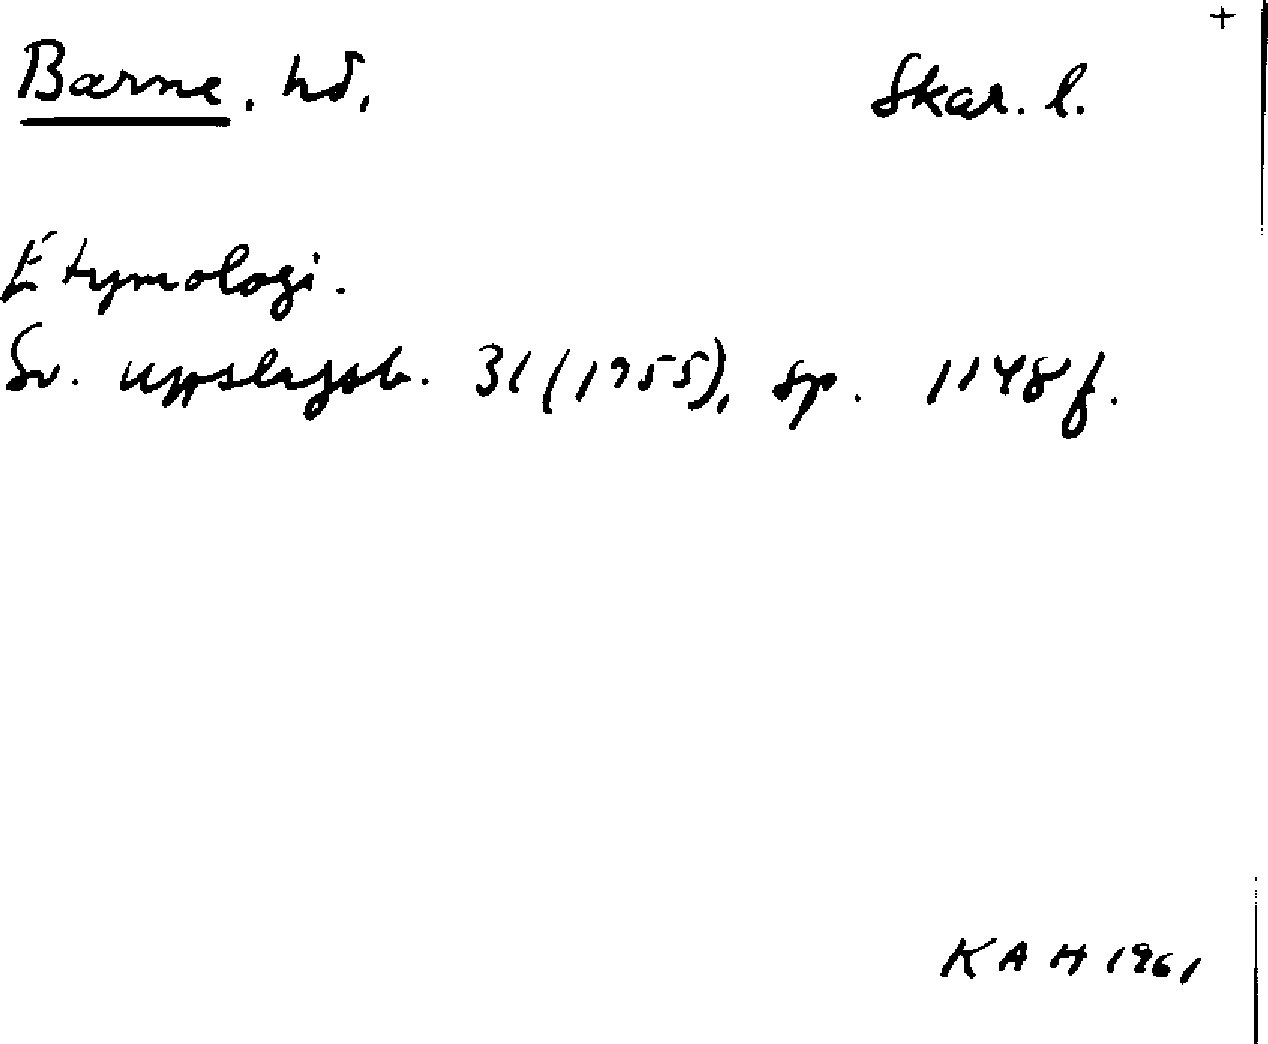 +
Barne. hd. Skar. l.
Etymologi.
Sv. uppslagsb. 31 (1955), sp. 1148 f.
KAH 1961